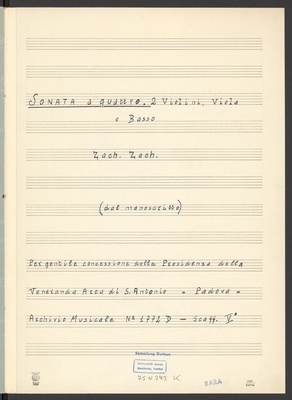 SONATA a quattro. 2 Violini, Viola
e Basso
Zach. Zach.
(dal manoscritto)
Per gentile concessione della Presidenza della
Veneranda Arca di S. Antonio = Padova =
Archivio Musicale Nº 1772 D — Scaff. V°